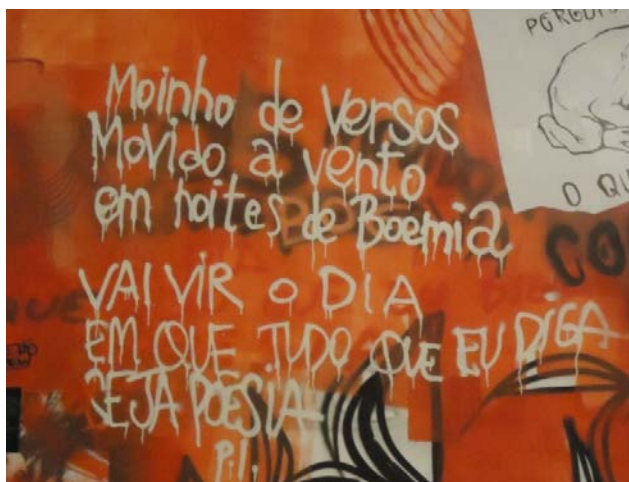 Moinho de versos
Movido a vento
em noites de Boemia
VAI VIR O DIA
EM QUE TUDO QUE EU DIGA
SEJA POESIA
P.L.
O QU
CO